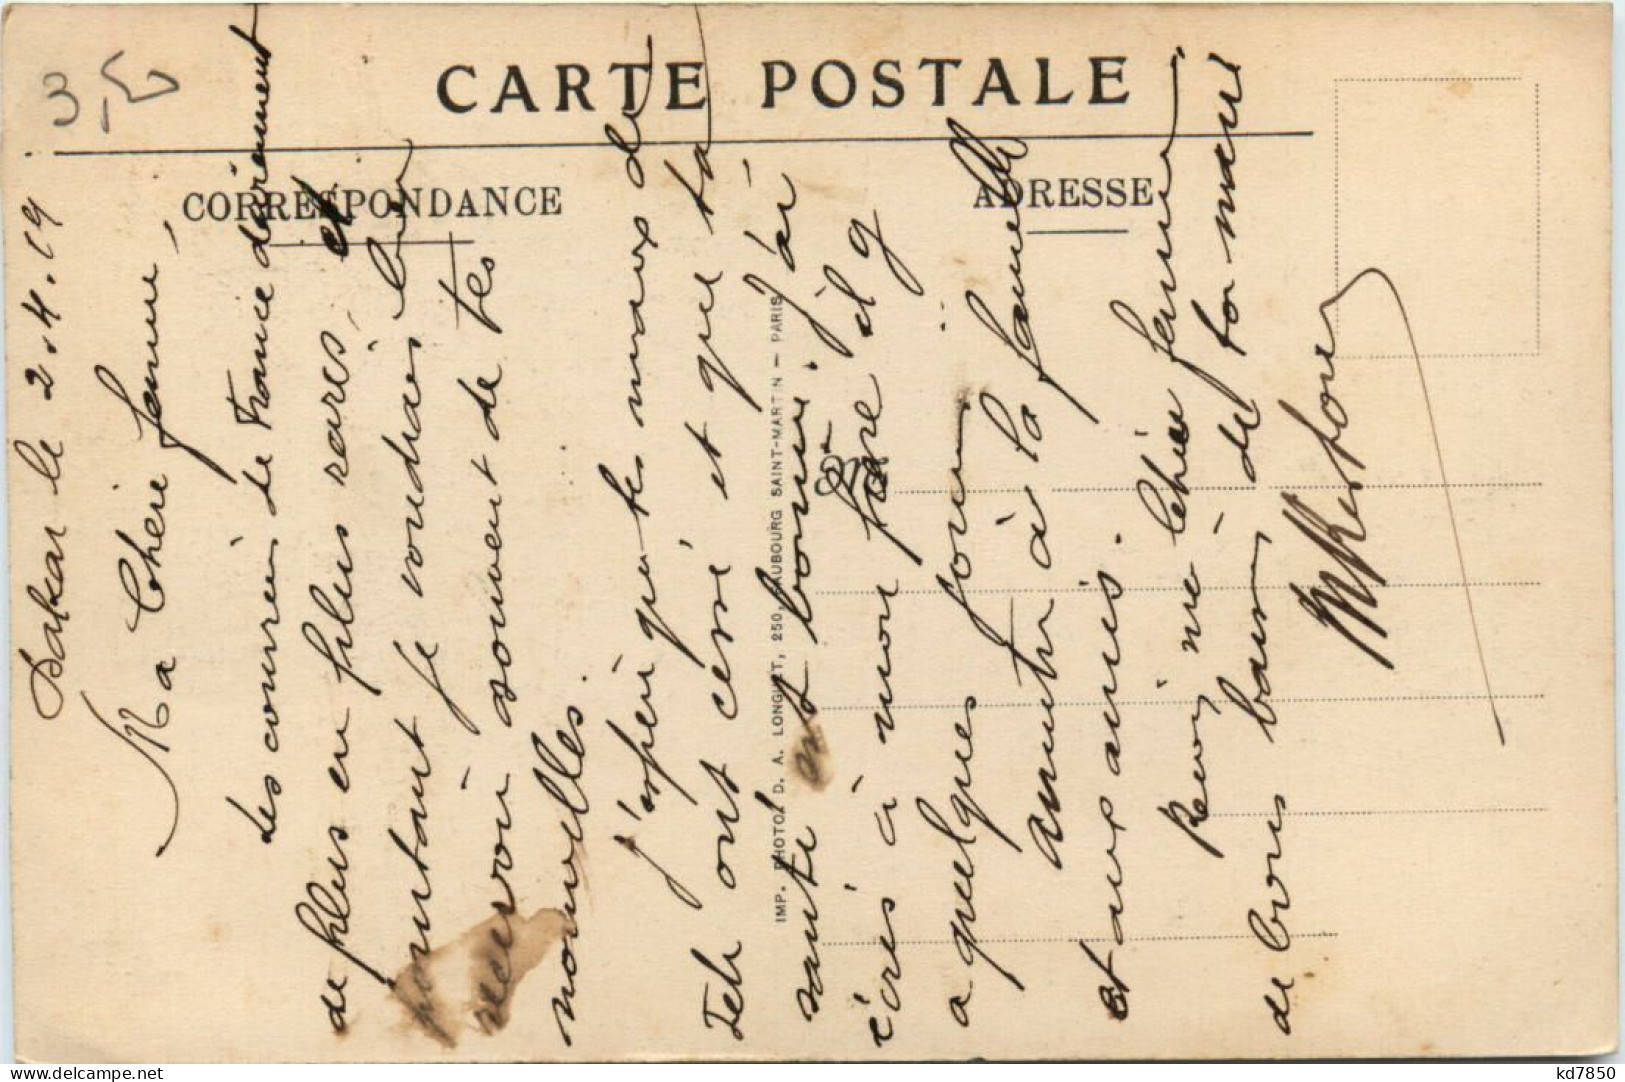 CARTE POSTALE
CORRESPONDANCE
ADRESSE
3-
Dakar le 2.4.19
Ma Chère femme,
Les courriers de France deviennent
de plus en plus rares, et
pourtant je voudrais bien
recevoir souvent de tes
nouvelles.
J'espère que tes maux de
tete ont cessé et que ta
santé est bonne. J'ai
écris à mon frère il y
a quelques jours
à la famille
et aux amis.
ma chère femme
de bons baisers de ton mari
IMP. PHOTO. D. A. LONGUET, 250, FAUBOURG SAINT-MARTIN - PARIS
kd7850